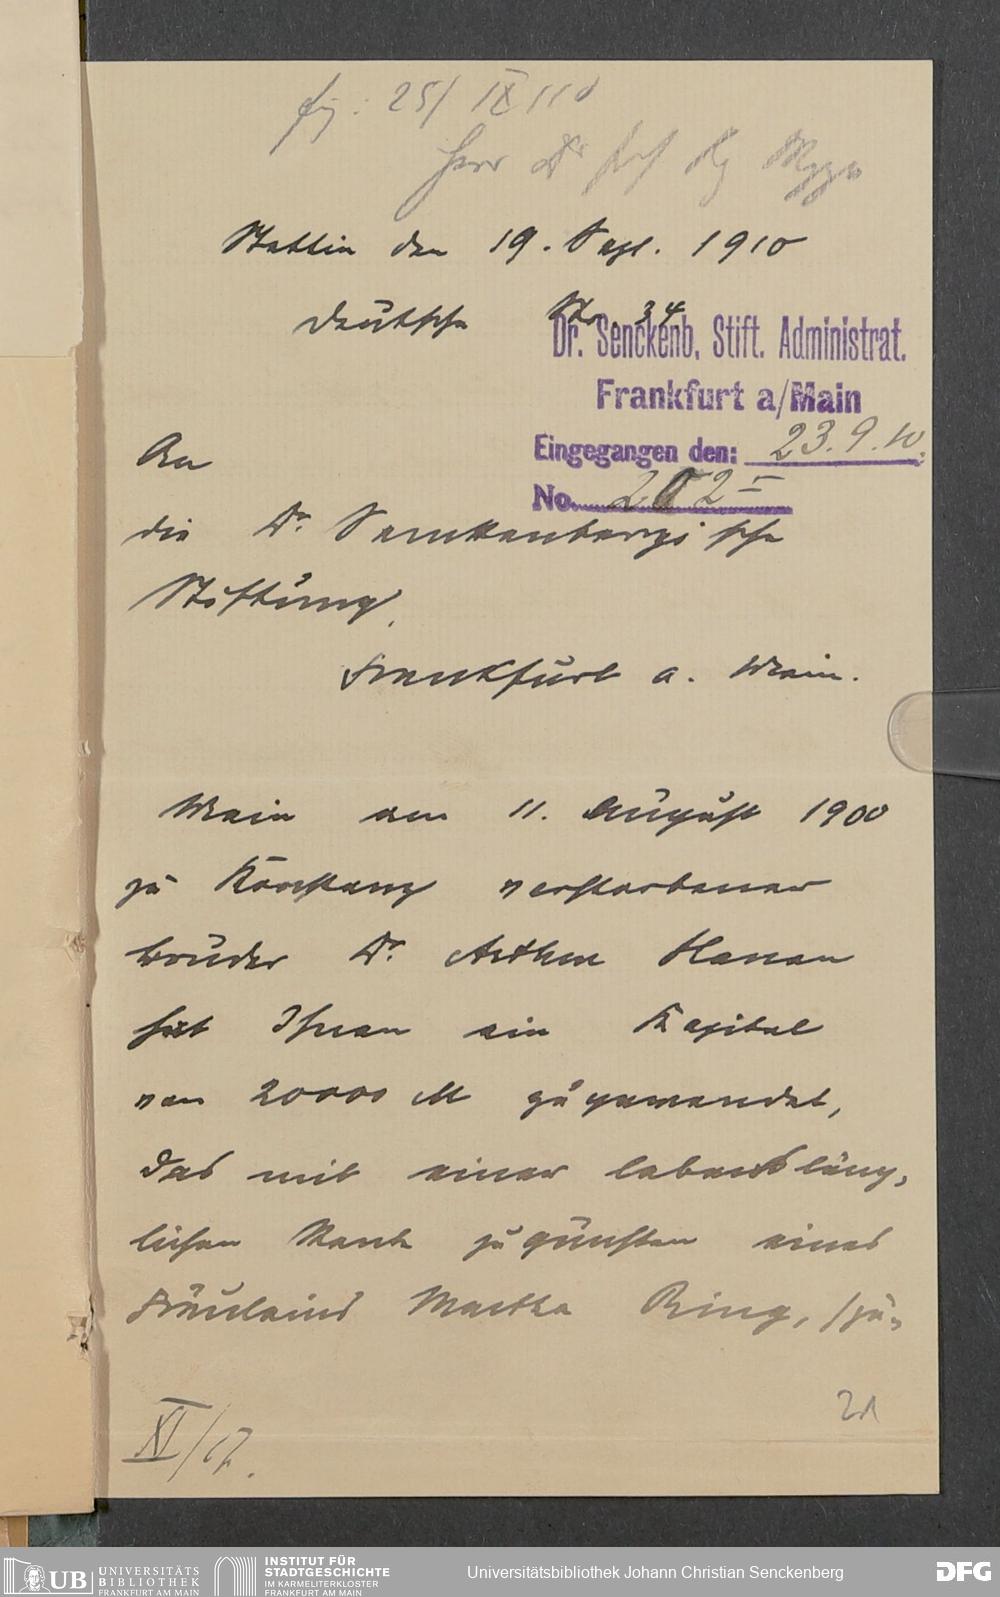 25/ IX 110
Herr Dr
Stettin den 19. Sept. 1910
Deutsche Str 34
Dr. Senckenb. Stift. Administrat.
Frankfurt a/Main
Eingegangen den: 23.9.10.
No. 202 I
An
die Dr. Senckenbergische
Stiftung,
Frankfurt a. Main.
Mein am 11. August 1900
zu Konstanz verstorbener
Bruder Dr. Arthur Hanau
hat Ihnen ein Kapital
von 20000 M zugewendet,
das mit einer lebensläng-
lichen Rente zugunsten eines
Fräuleins Martha Ring, /zu-
21
XI/17.
UB UNIVERSITÄTS
BIBLIOTHEK
FRANKFURT AM MAIN
INSTITUT FÜR
STADTGESCHICHTE
IM KARMELITERKLOSTER
FRANKFURT AM MAIN
Universitätsbibliothek Johann Christian Senckenberg
DFG